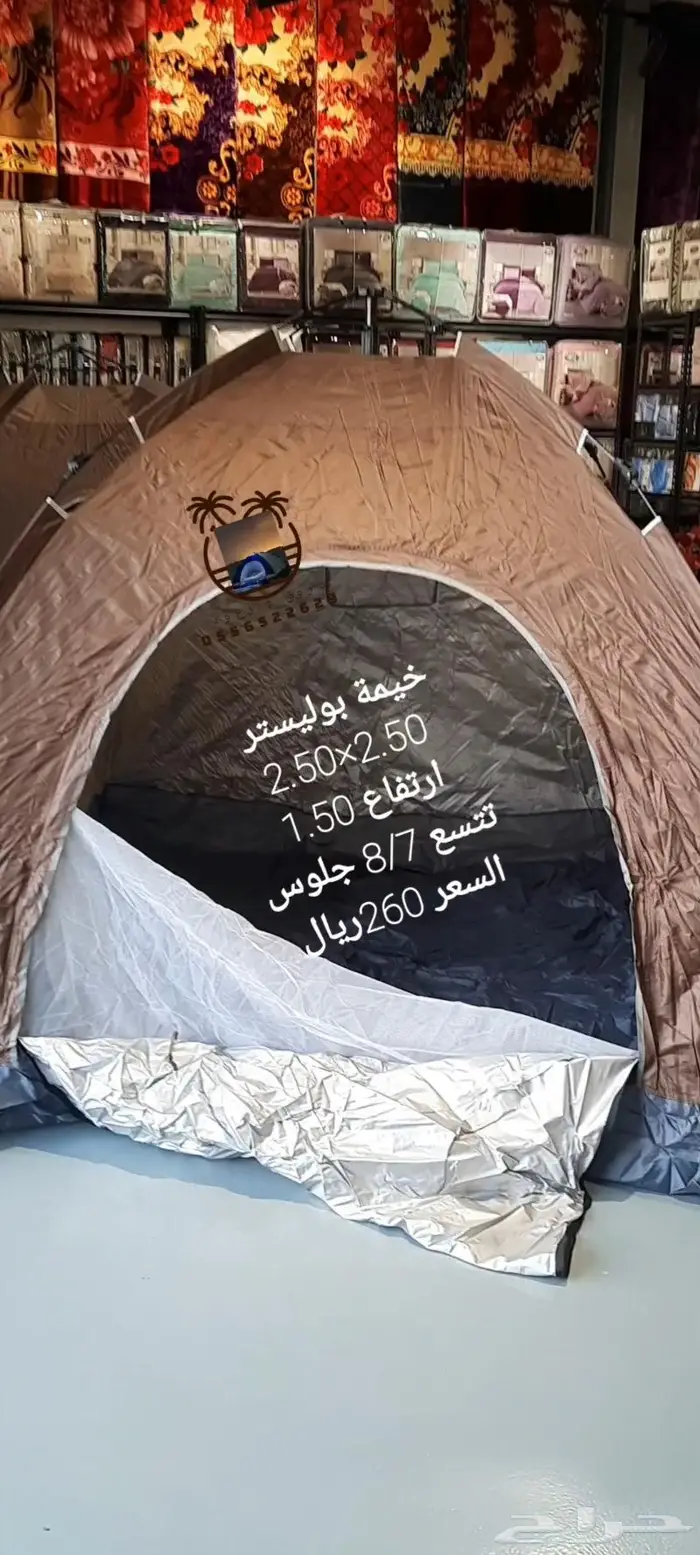 0556522628
خيمة بوليستر
2.50×2.50
ارتفاع 1.50
تتسع 8/7 جلوس
السعر 260ريال
حراج